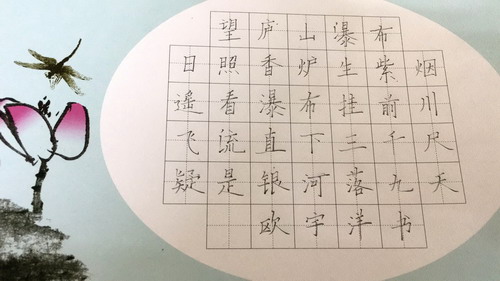 望庐山瀑布
日照香炉生紫烟
遥看瀑布挂前川
飞流直下三千尺
疑是银河落九天
欧宇洋书